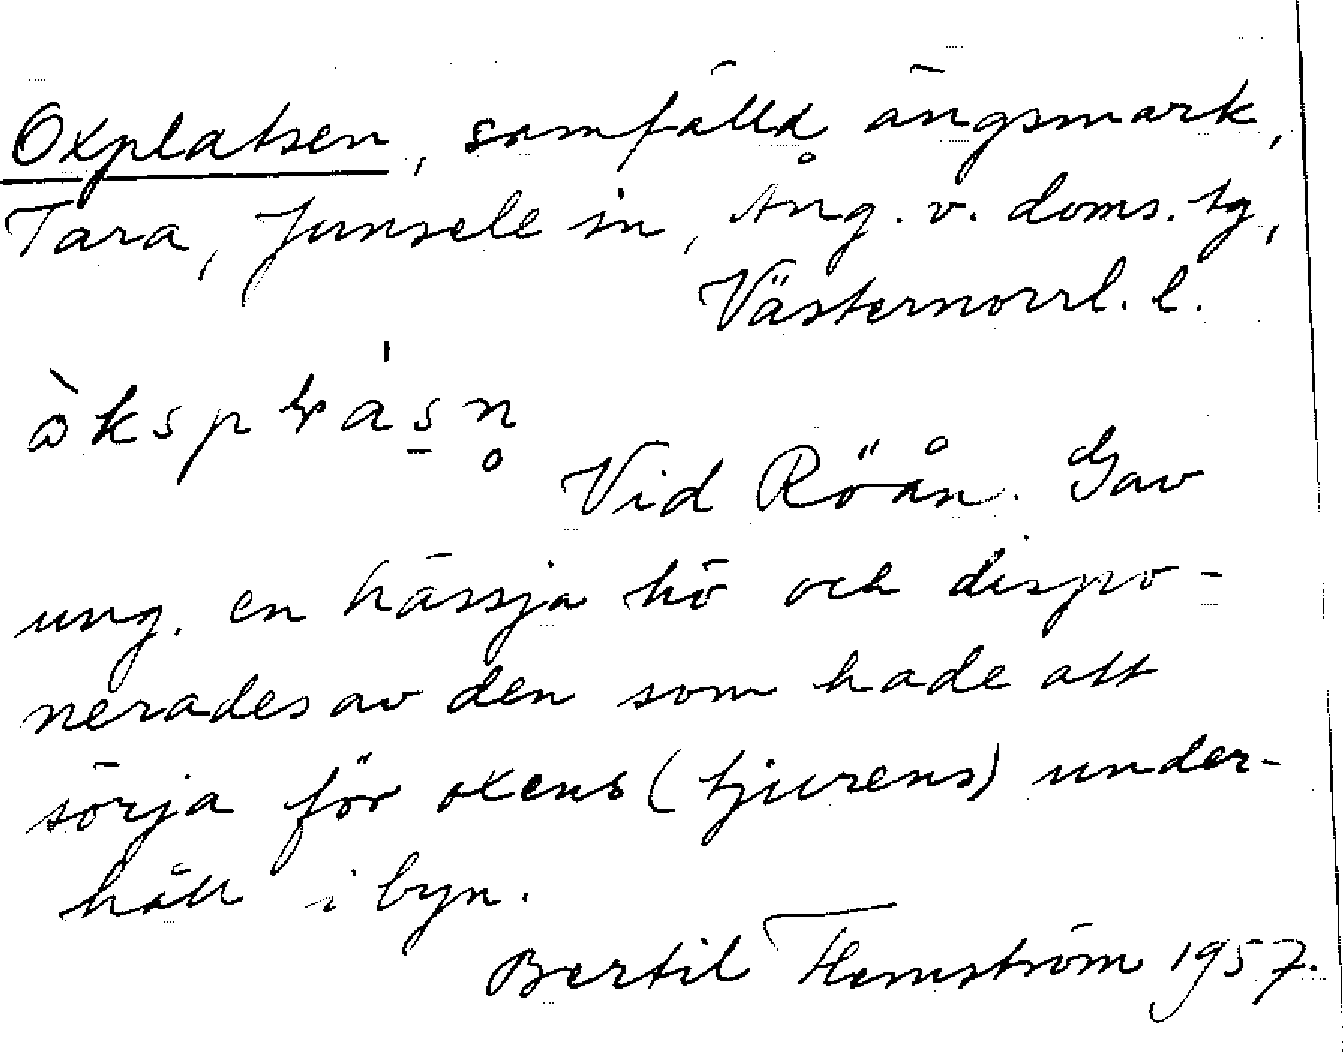 Oxplatsen, samfälld ängsmark,
Tara, Junsele sn, Ång. v. doms. tg,
Västernorrl. l.
Vid Röån. Gav
ung. en hässja hö och dispo-
nerades av den som hade att
sörja för oxens (tjurens) under-
håll i byn.
Bertil Flemström 1957.